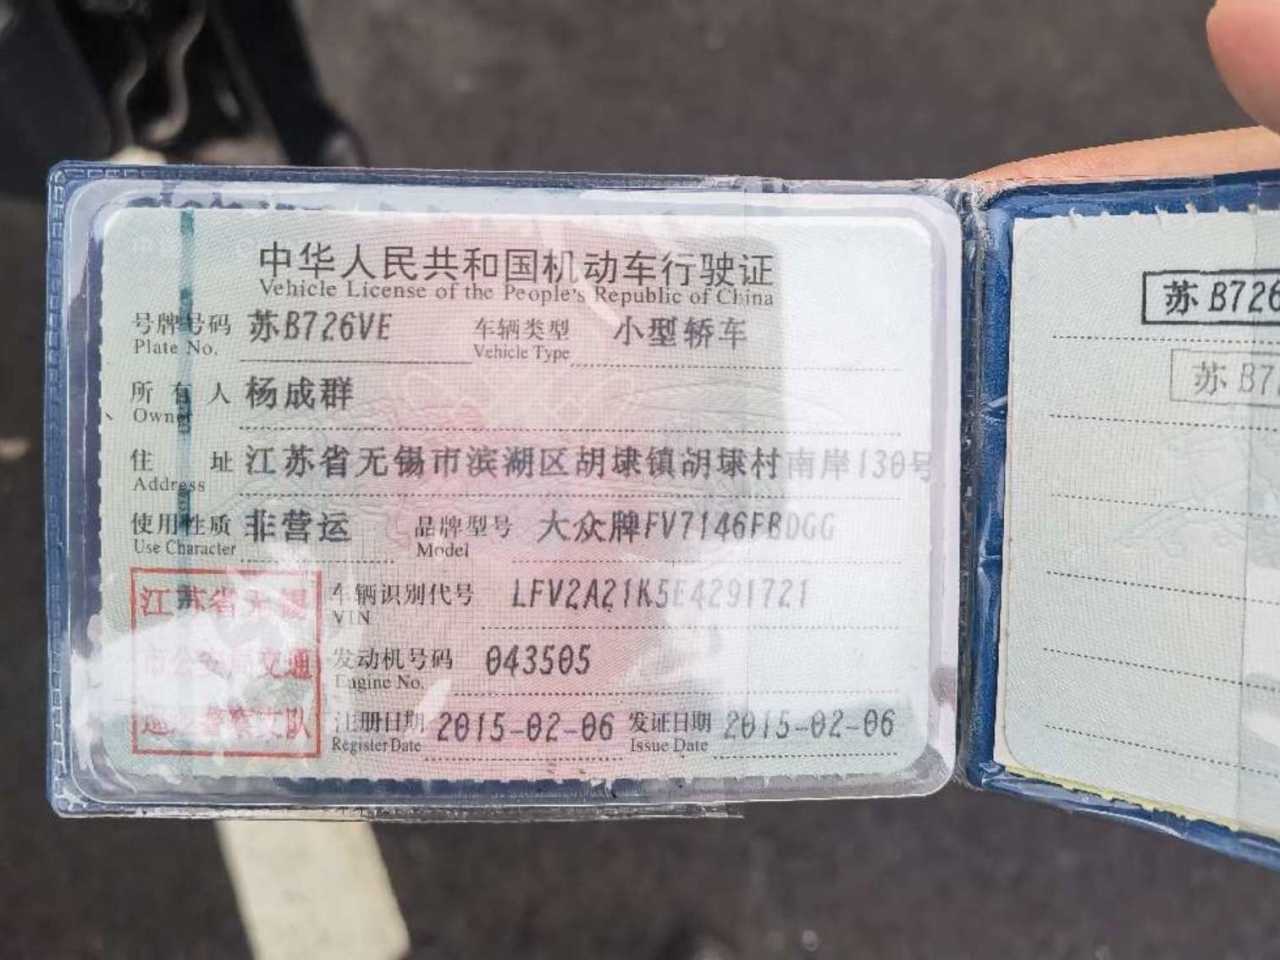 中华人民共和国机动车行驶证
Vehicle License of the People's Republic of China
号牌号码 苏B726VE 车辆类型 小型轿车
Plate No. Vehicle Type
所有人 杨成群
Owner
住址 江苏省无锡市滨湖区胡埭镇胡埭村南岸130号
Address
使用性质 非营运 品牌型号 大众牌FV7146FBDGG
Use Character Model
江苏省无锡 车辆识别代号 LFV2A21K5E4291721
VIN
市公安局交通 发动机号码 043505
Engine No.
巡逻警察支队 注册日期 2015-02-06 发证日期 2015-02-06
Register Date Issue Date
苏B726
苏B7